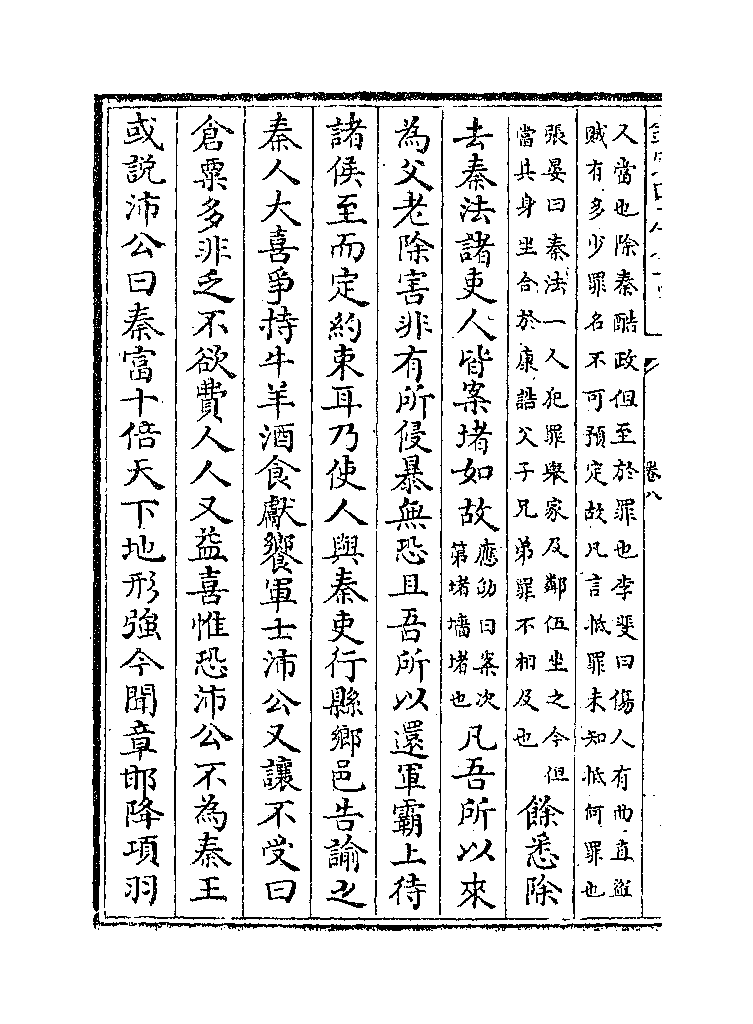 卷八
又當也除秦酷政但至於罪也李斐曰傷人有曲直盜
賊有多少罪名不可預定故凡言抵罪未知抵何罪也
張晏曰秦法一人犯罪舉家及鄰伍坐之今但
當其身坐合於康誥父子兄弟罪不相及也
餘悉除
去秦法諸吏人皆案堵如故
應劭曰案案次
第堵墻堵也
凡吾所以來
為父老除害非有所侵暴無恐且吾所以還軍霸上待
諸侯至而定約束耳乃使人與秦吏行縣鄉邑告諭之
秦人大喜爭持牛羊酒食獻饗軍士沛公又讓不受曰
倉粟多非乏不欲費人人又益喜惟恐沛公不為秦王
或說沛公曰秦富十倍天下地形強今聞章邯降項羽